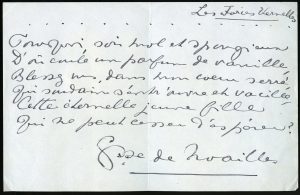 Les Forces Eternelles
Pourquoi, soir mol et spongieux
D'où coule un parfum de vanille
Blessez-vous, dans mon coeur serré
Qui soudain s'entr'ouvre et vacille
Cette éternelle jeune fille
Qui ne peut cesser d'espérer?
Ctsse de Noailles